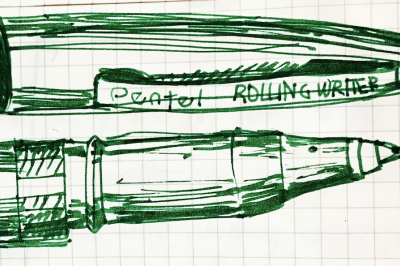 Pentel ROLLING WRITER